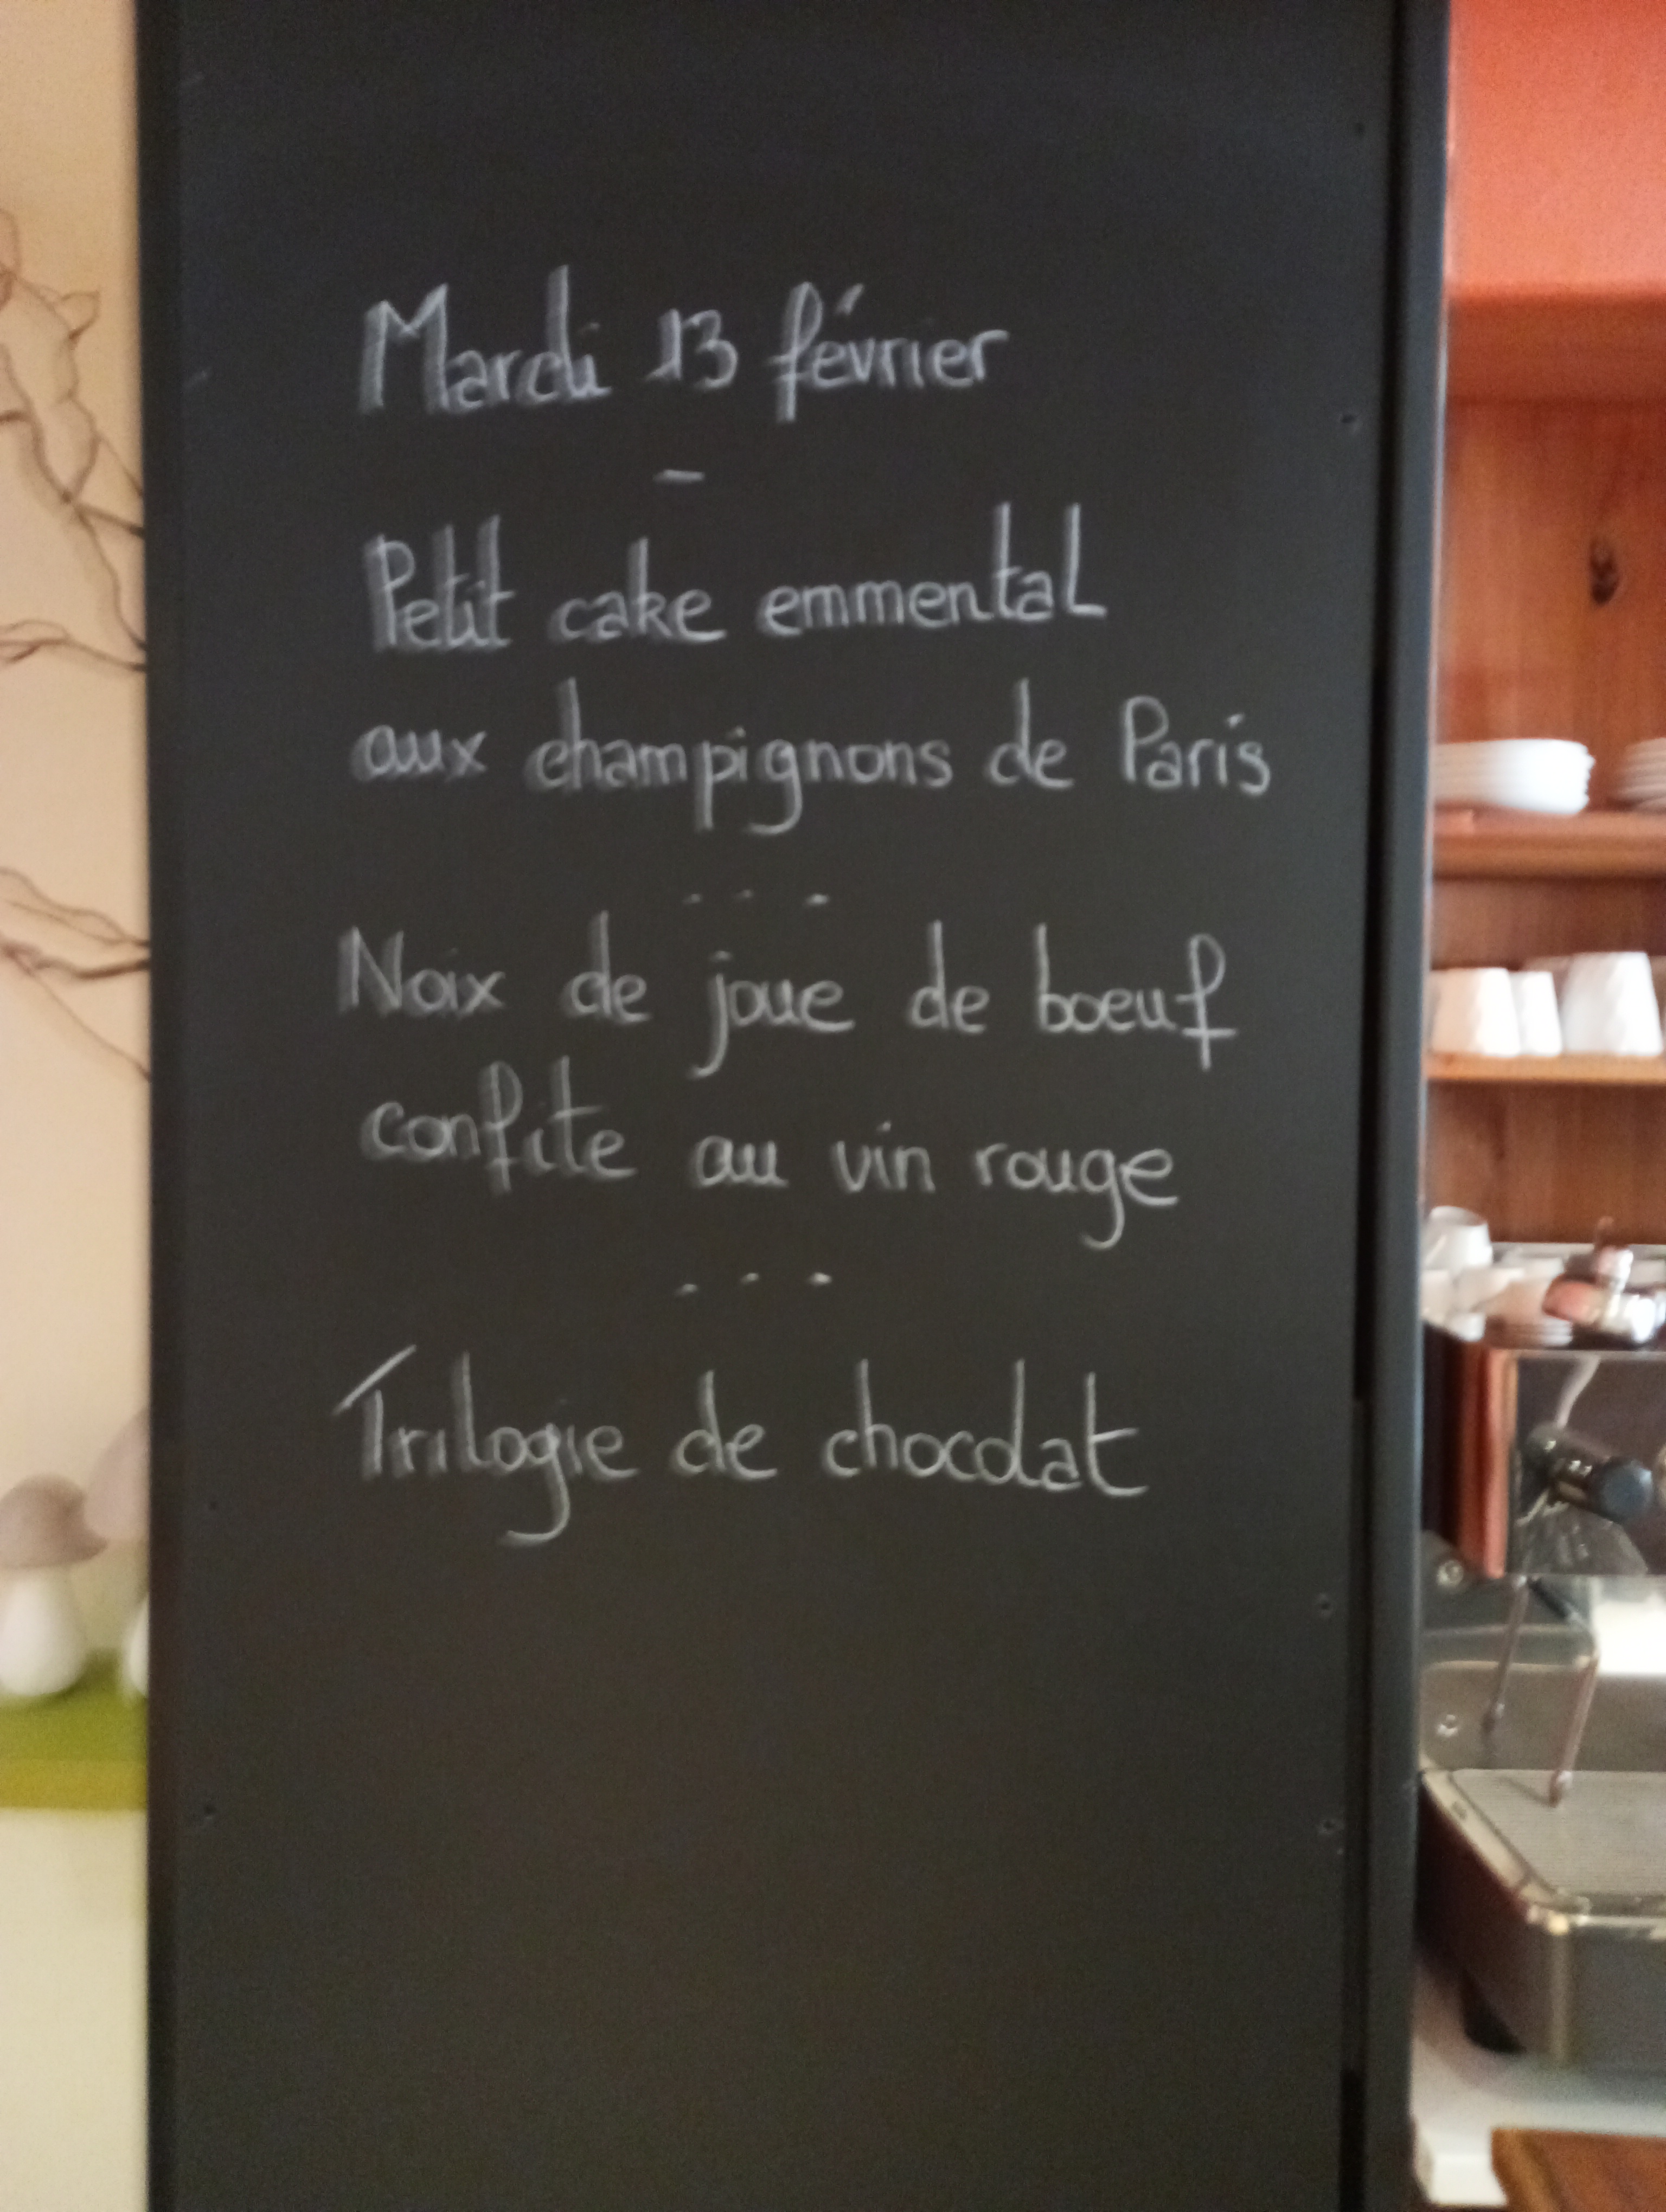 Mardi 13 février
-
Petit cake emmental
aux champignons de Paris
...
Noix de joue de boeuf
confite au vin rouge
...
Trilogie de chocolat